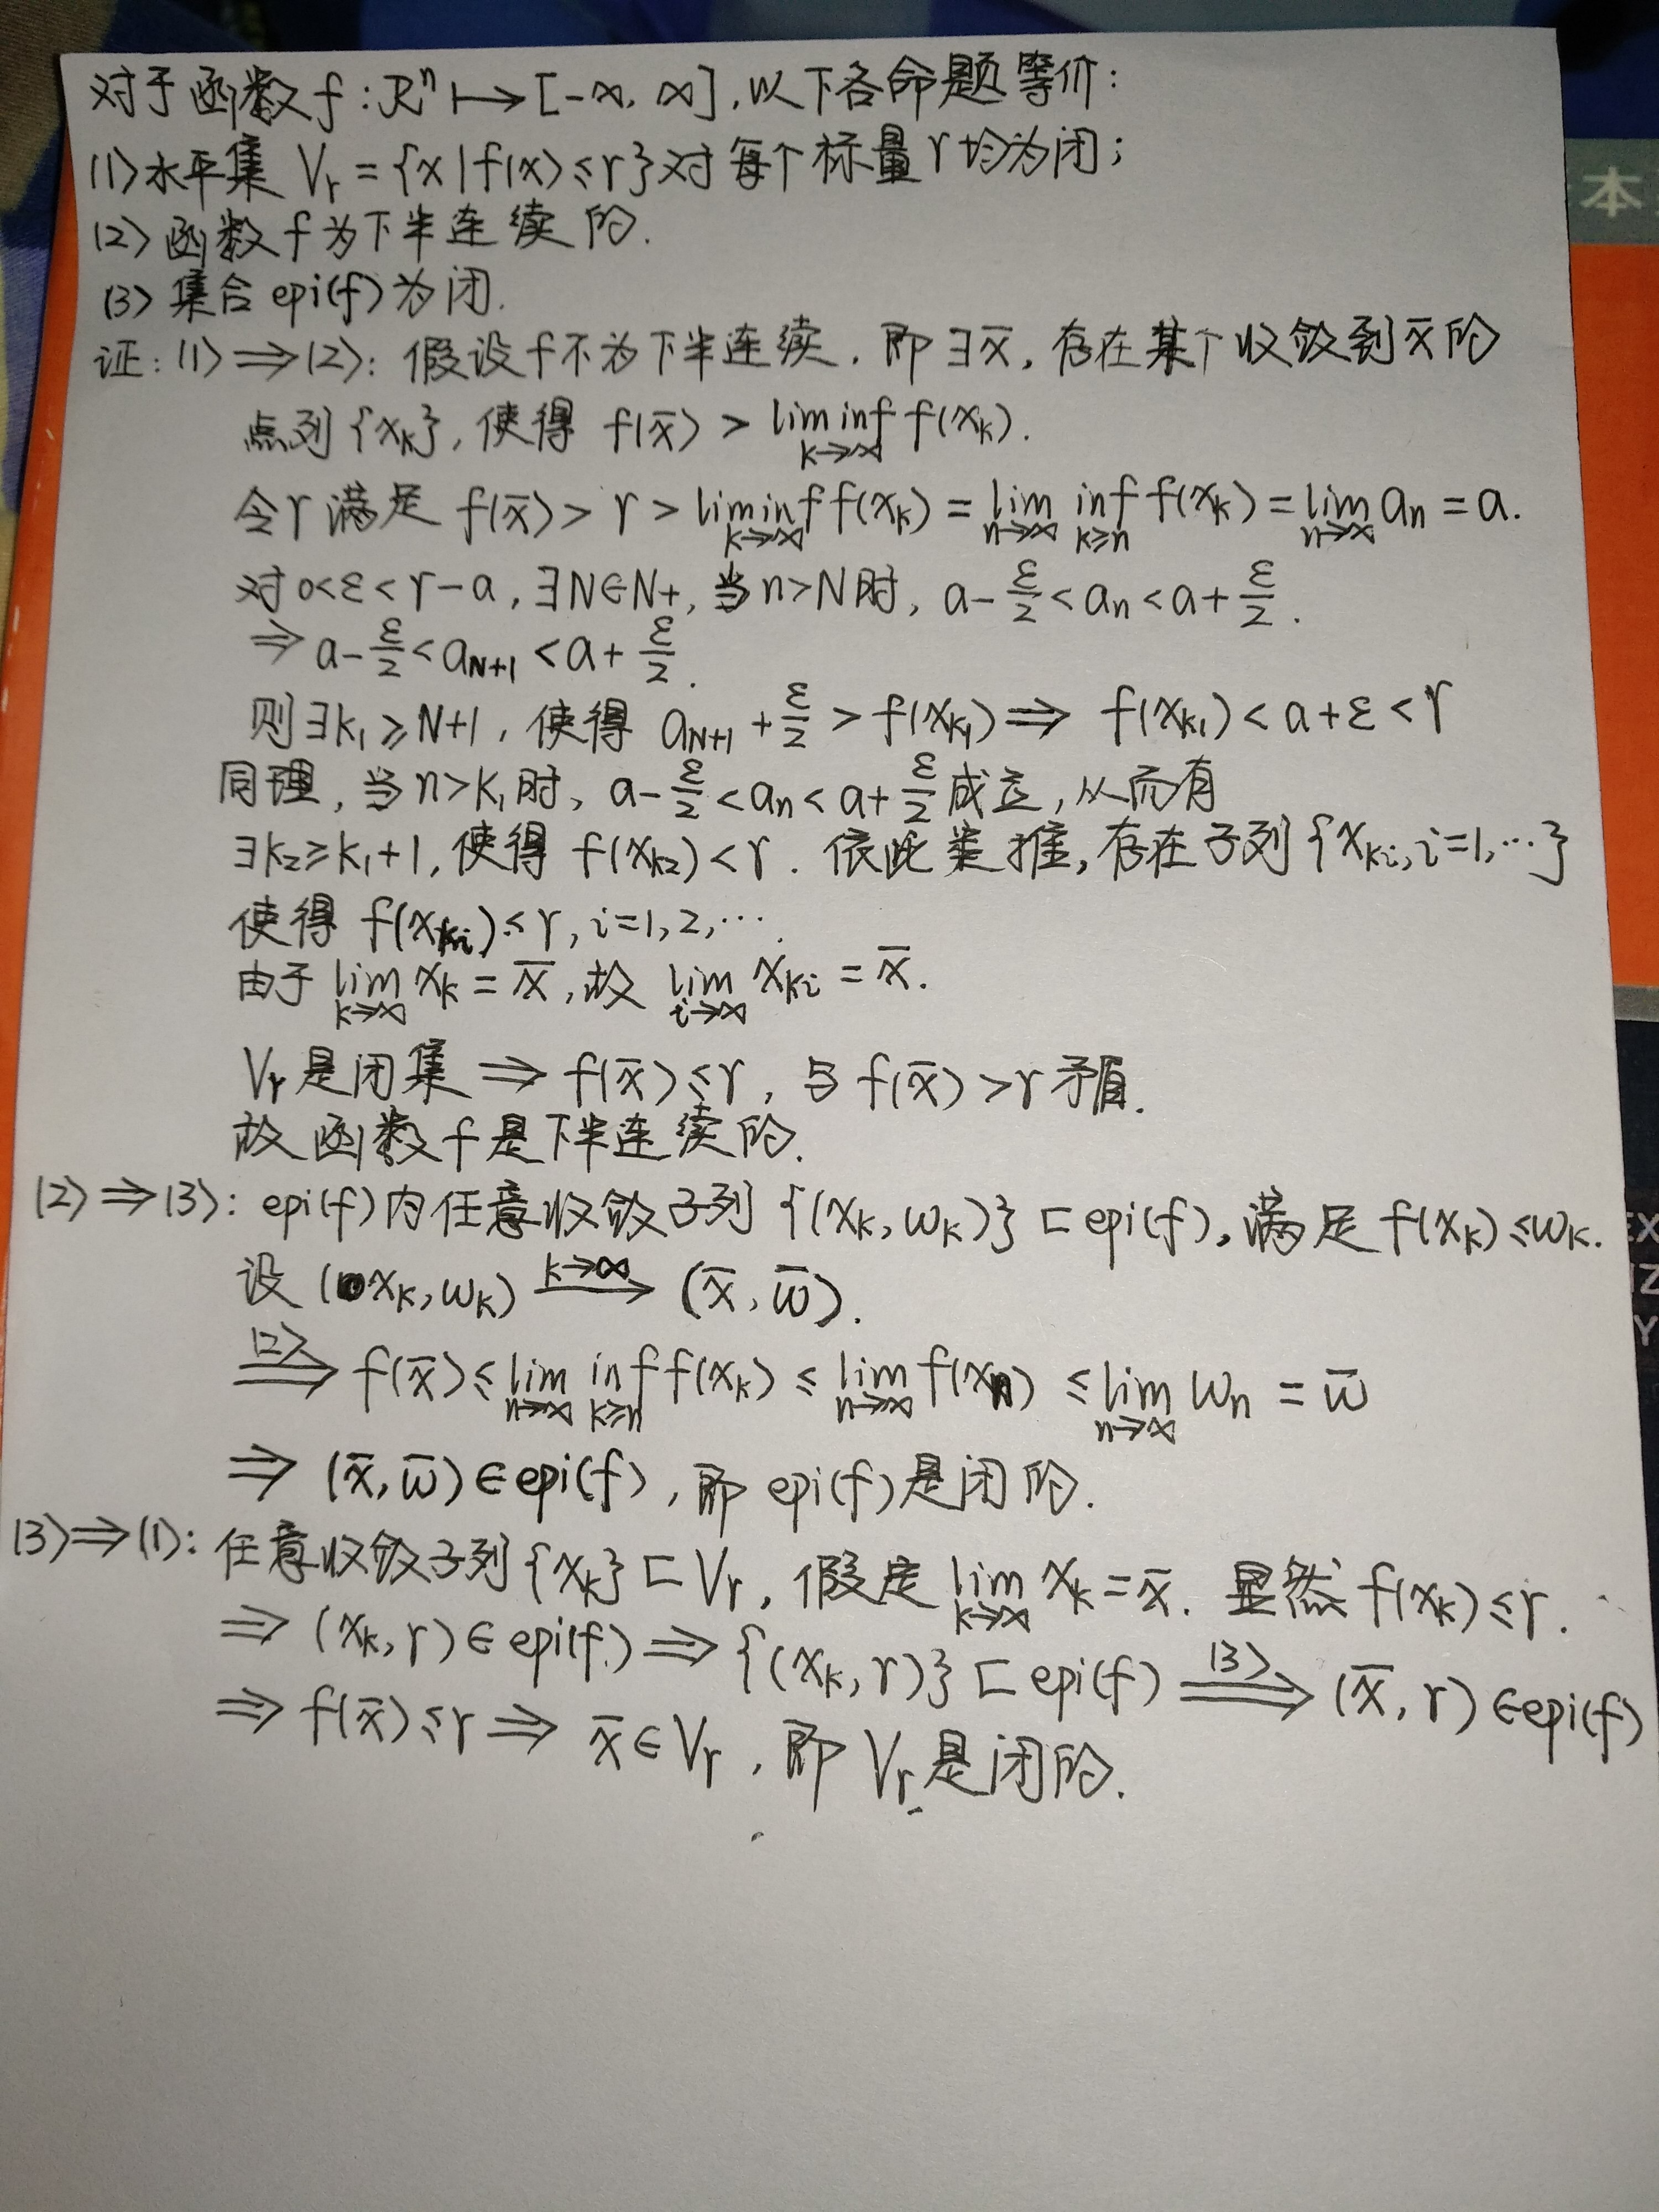 对于函数f:Rⁿ↦[-∞, ∞],以下各命题等价:
(1)水平集 Vr={x|f(x)≤r}对每个标量r均为闭;
(2)函数f为下半连续的.
(3)集合epi(f)为闭.
证:(1)⇒(2):假设f不为下半连续,即∃x̄,存在某个收敛到x̄的
点列{xk},使得 f(x̄) > lim inf k→∞ f(xk).
令r满足 f(x̄) > r > lim inf k→∞ f(xk) = lim n→∞ inf k≥n f(xk) = lim n→∞ an = a.
对0<ε<r-a, ∃N∈N+, 当n>N时, a-ε/2<an<a+ε/2.
⇒ a-ε/2<aN+1<a+ε/2.
则∃k1≥N+1, 使得 aN+1+ε/2>f(xk1)⇒ f(xk1)<a+ε<r
同理,当n>k1时, a-ε/2<an<a+ε/2成立,从而有
∃k2≥k1+1,使得 f(xk2)<r. 依此类推,存在子列{xki,i=1,…}
使得 f(xki)≤r, i=1,2,…
由于 lim k→∞ xk=x̄,故 lim i→∞ xki=x̄.
Vr是闭集⇒f(x̄)≤r, 与f(x̄)>r矛盾.
故函数f是下半连续的.
(2)⇒(3): epi(f)内任意收敛子列{(xk,wk)}⊏epi(f),满足f(xk)≤wk.
设(xk,wk) k→∞ → (x̄,w̄).
(2) ⇒ f(x̄)≤lim n→∞ inf k≥n f(xk) ≤ lim n→∞ f(xn) ≤ lim n→∞ wn = w̄
⇒ (x̄,w̄)∈epi(f), 即epi(f)是闭的.
(3)⇒(1): 任意收敛子列{xk}⊏Vr, 假定 lim k→∞ xk=x̄. 显然f(xk)≤r.
⇒ (xk,r)∈epi(f)⇒{(xk,r)}⊏epi(f) (3) ⇒ (x̄,r)∈epi(f)
⇒ f(x̄)≤r⇒ x̄∈Vr, 即Vr是闭的.
本
EX
IZ
Y